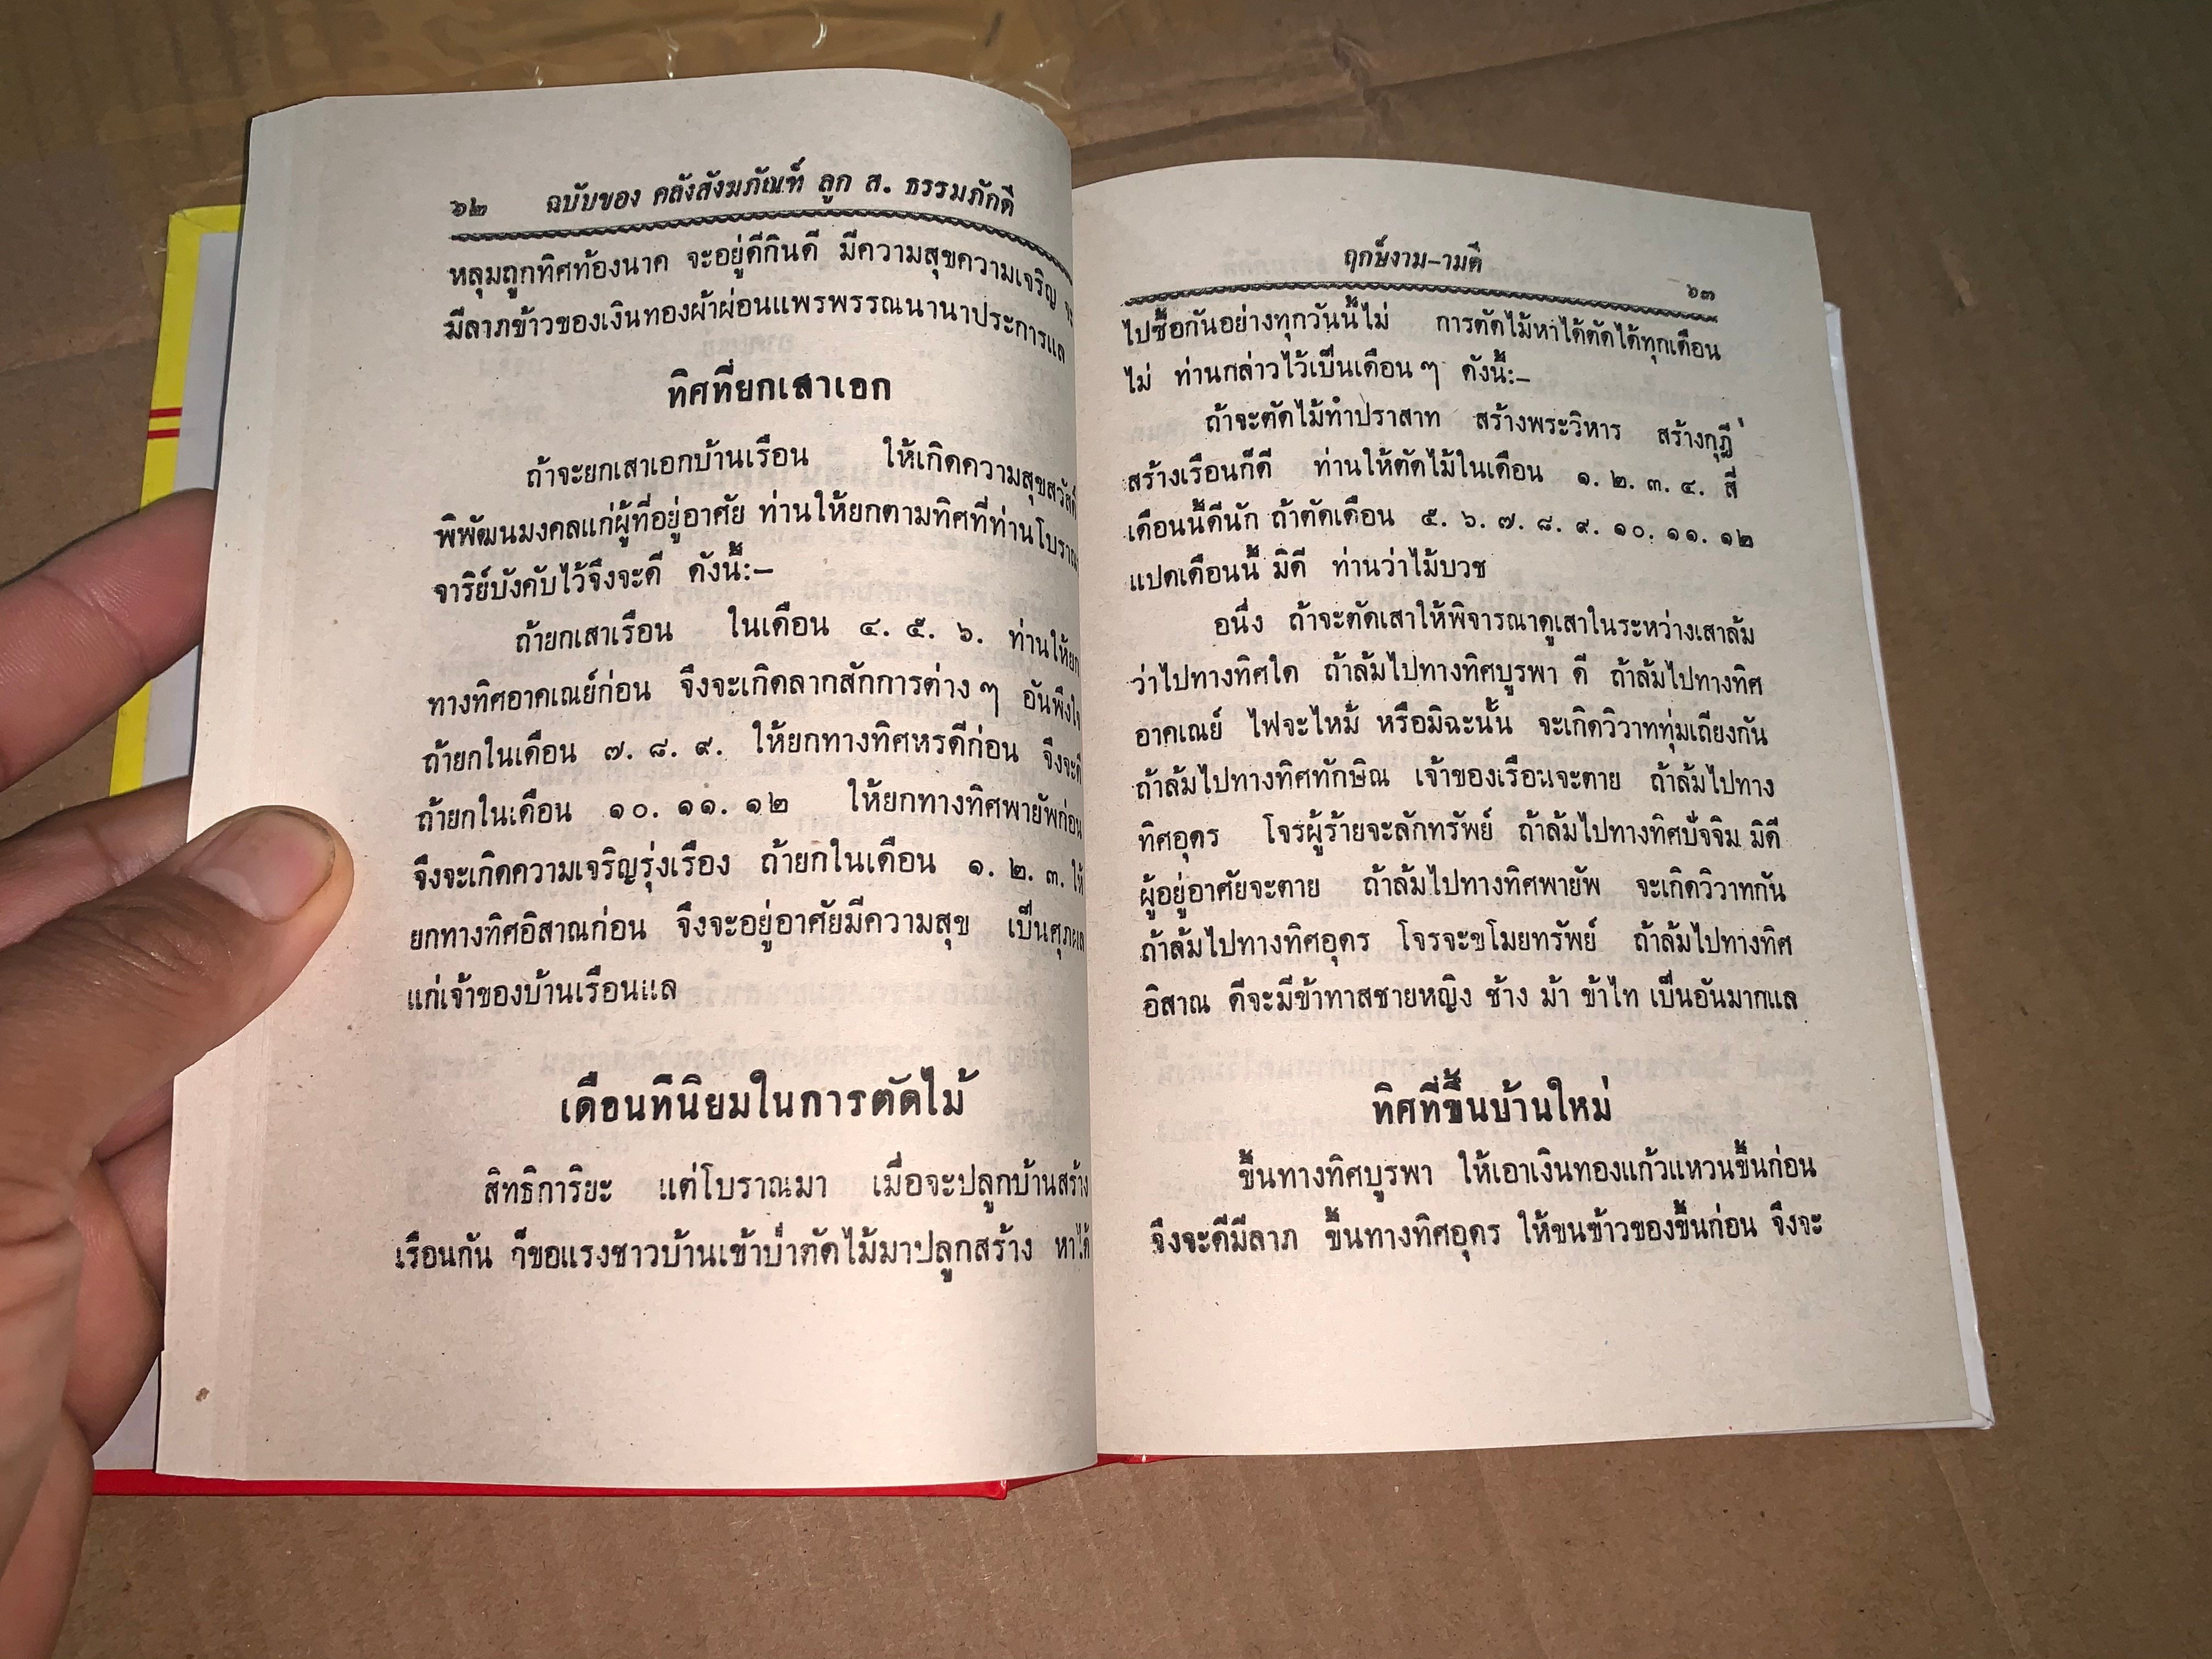 ๖๒ ฉบับของ คลังสังฆภัณฑ์ ลูก ส. ธรรมภักดี
หลุมถูกทิศท้องนาค จะอยู่ดีกินดี มีความสุขความเจริญ จะ
มีลาภข้าวของเงินทองผ้าผ่อนแพรพรรณนานาประการแล
ทิศที่ยกเสาเอก
ถ้าจะยกเสาเอกบ้านเรือน ให้เกิดความสุขสวัสดิ์
พิพัฒนมงคลแก่ผู้ที่อยู่อาศัย ท่านให้ยกตามทิศที่ท่านโบราณ
จาริย์บังคับไว้จึงจะดี ดังนี้:–
ถ้ายกเสาเรือน ในเดือน ๔. ๕. ๖. ท่านให้ยก
ทางทิศอาคเณย์ก่อน จึงจะเกิดลาภสักการต่าง ๆ อันพึงใจ
ถ้ายกในเดือน ๗. ๘. ๙. ให้ยกทางทิศหรดีก่อน จึงจะดี
ถ้ายกในเดือน ๑๐. ๑๑. ๑๒ ให้ยกทางทิศพายัพก่อน
จึงจะเกิดความเจริญรุ่งเรือง ถ้ายกในเดือน ๑. ๒. ๓. ให้
ยกทางทิศอิสาณก่อน จึงจะอยู่อาศัยมีความสุข เป็นศุภผล
แก่เจ้าของบ้านเรือนแล
เดือนที่นิยมในการตัดไม้
สิทธิการิยะ แต่โบราณมา เมื่อจะปลูกบ้านสร้าง
เรือนกัน ก็ขอแรงชาวบ้านเข้าป่าตัดไม้มาปลูกสร้าง หาได้
ฤกษ์งาม–ยามดี ๖๓
ไปซื้อกันอย่างทุกวันนี้ไม่ การตัดไม้หาได้ตัดได้ทุกเดือน
ไม่ ท่านกล่าวไว้เป็นเดือน ๆ ดังนี้:–
ถ้าจะตัดไม้ทำปราสาท สร้างพระวิหาร สร้างกุฏี่
สร้างเรือนก็ดี ท่านให้ตัดไม้ในเดือน ๑. ๒. ๓. ๔. สี่
เดือนนี้ดีนัก ถ้าตัดเดือน ๕. ๖. ๗. ๘. ๙. ๑๐. ๑๑. ๑๒
แปดเดือนนี้ มิดี ท่านว่าไม้บวช
อนึ่ง ถ้าจะตัดเสาให้พิจารณาดูเสาในระหว่างเสาล้ม
ว่าไปทางทิศใด ถ้าล้มไปทางทิศบูรพา ดี ถ้าล้มไปทางทิศ
อาคเณย์ ไฟจะไหม้ หรือมิฉะนั้น จะเกิดวิวาททุ่มเถียงกัน
ถ้าล้มไปทางทิศทักษิณ เจ้าของเรือนจะตาย ถ้าล้มไปทาง
ทิศอุดร โจรผู้ร้ายจะลักทรัพย์ ถ้าล้มไปทางทิศปัจจิม มิดี
ผู้อยู่อาศัยจะตาย ถ้าล้มไปทางทิศพายัพ จะเกิดวิวาทกัน
ถ้าล้มไปทางทิศอุดร โจรจะขโมยทรัพย์ ถ้าล้มไปทางทิศ
อิสาณ ดีจะมีข้าทาสชายหญิง ช้าง ม้า ข้าไท เป็นอันมากแล
ทิศที่ขึ้นบ้านใหม่
ขึ้นทางทิศบูรพา ให้เอาเงินทองแก้วแหวนขึ้นก่อน
จึงจะดีมีลาภ ขึ้นทางทิศอุดร ให้ขนข้าวของขึ้นก่อน จึงจะ